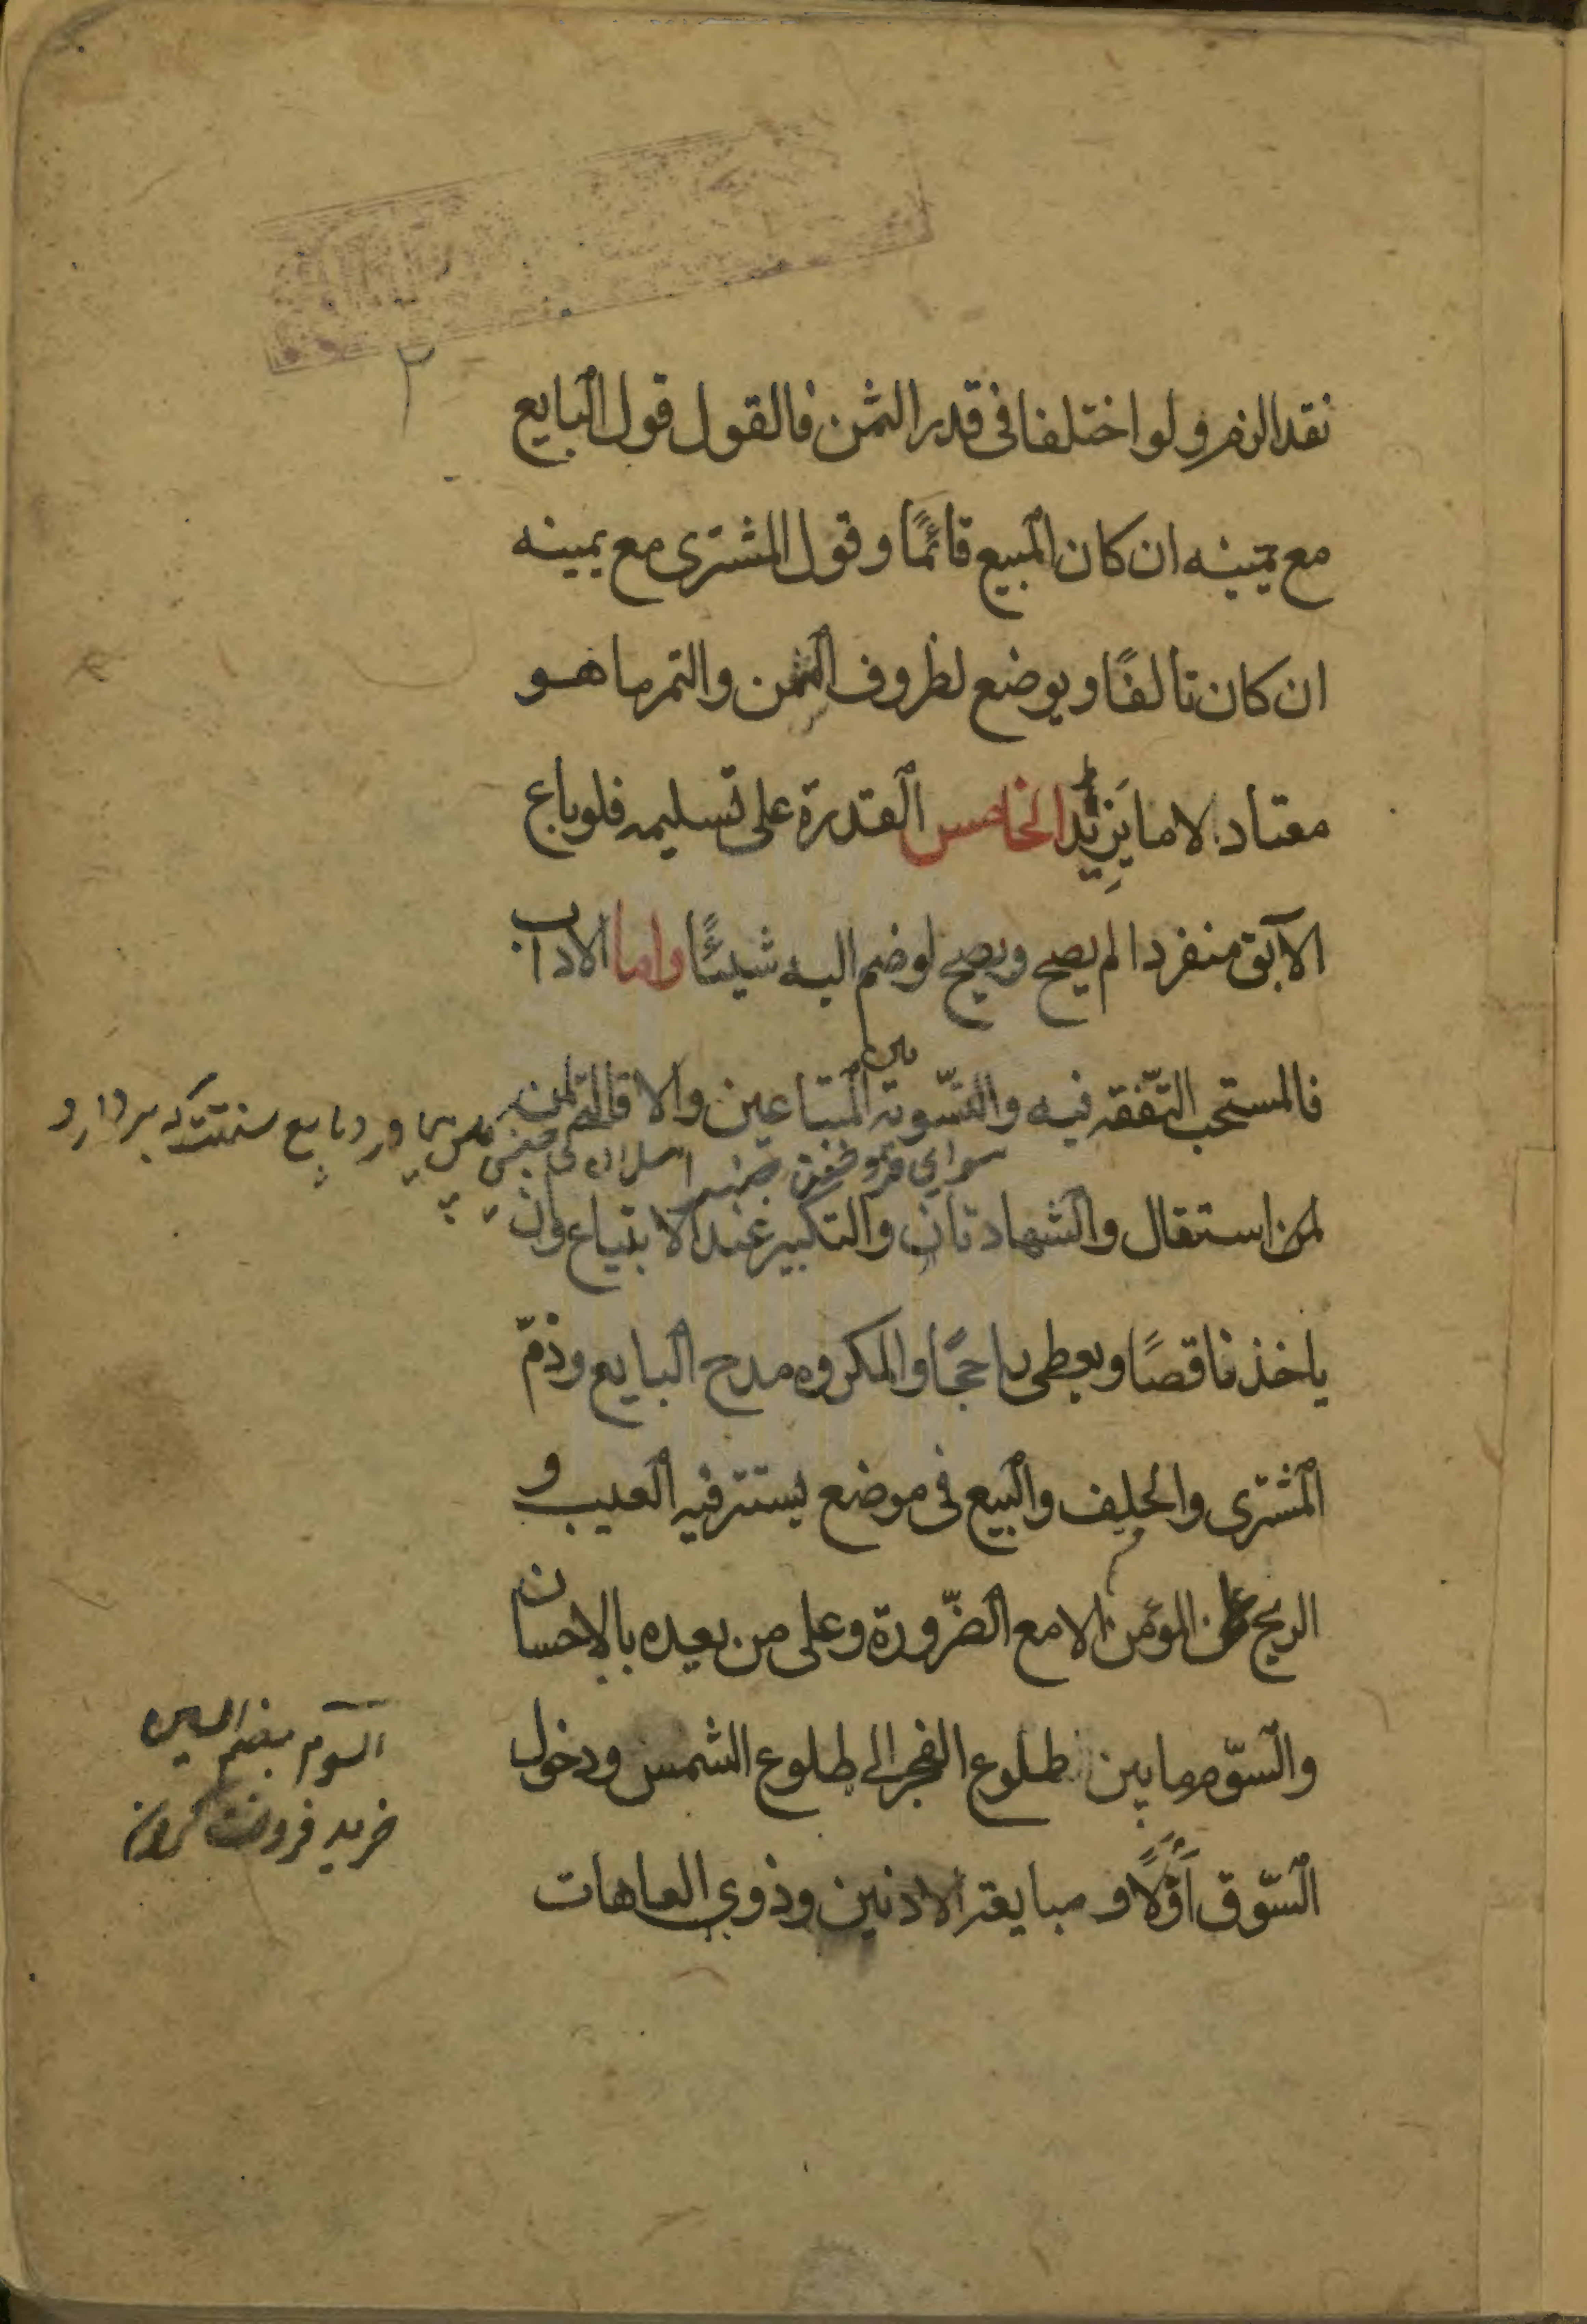 ٢
نقد الزم ولو اختلفا فى قدر الثمن فالقول قول البايع
مع يمينه ان كان المبيع قائمًا وقول المشترى مع يمينه
ان كان تالفًا ويوضع لظروف الثمن والتمر ما هو
معتاد لا ما يَزِيد الخامس القدرة على تسليمه فلو باع
الآبق منفردا لم يصح ويصح لو ضم اليه شيئًا واما الاداب
فالمستحب التّفقه فيه والتّسوية بين المبتاعين والاقالة لمن
لمن استقال والشهادتان والتكبير عند الابتياع وان
ياخذ ناقصًا ويعطى راجحًا والمكروه مدح البايع وذمّ
المشترى والحلف والبيع فى موضع يستتر فيه العيب و
الربح على المؤمن الا مع الضّرورة وعلى من يعيده بالاحسان
والسّوم ما بين طلوع الفجر الى طلوع الشمس ودخول
السّوق اَوّلًا و مبايعة الادنين وذوي العاهات
السوم بضم السين
خريد فروخت كردن